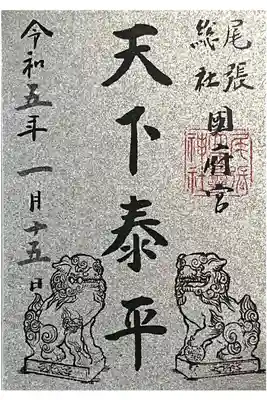 尾張
総社 国府宮
天下泰平
令和五年 一月十五日